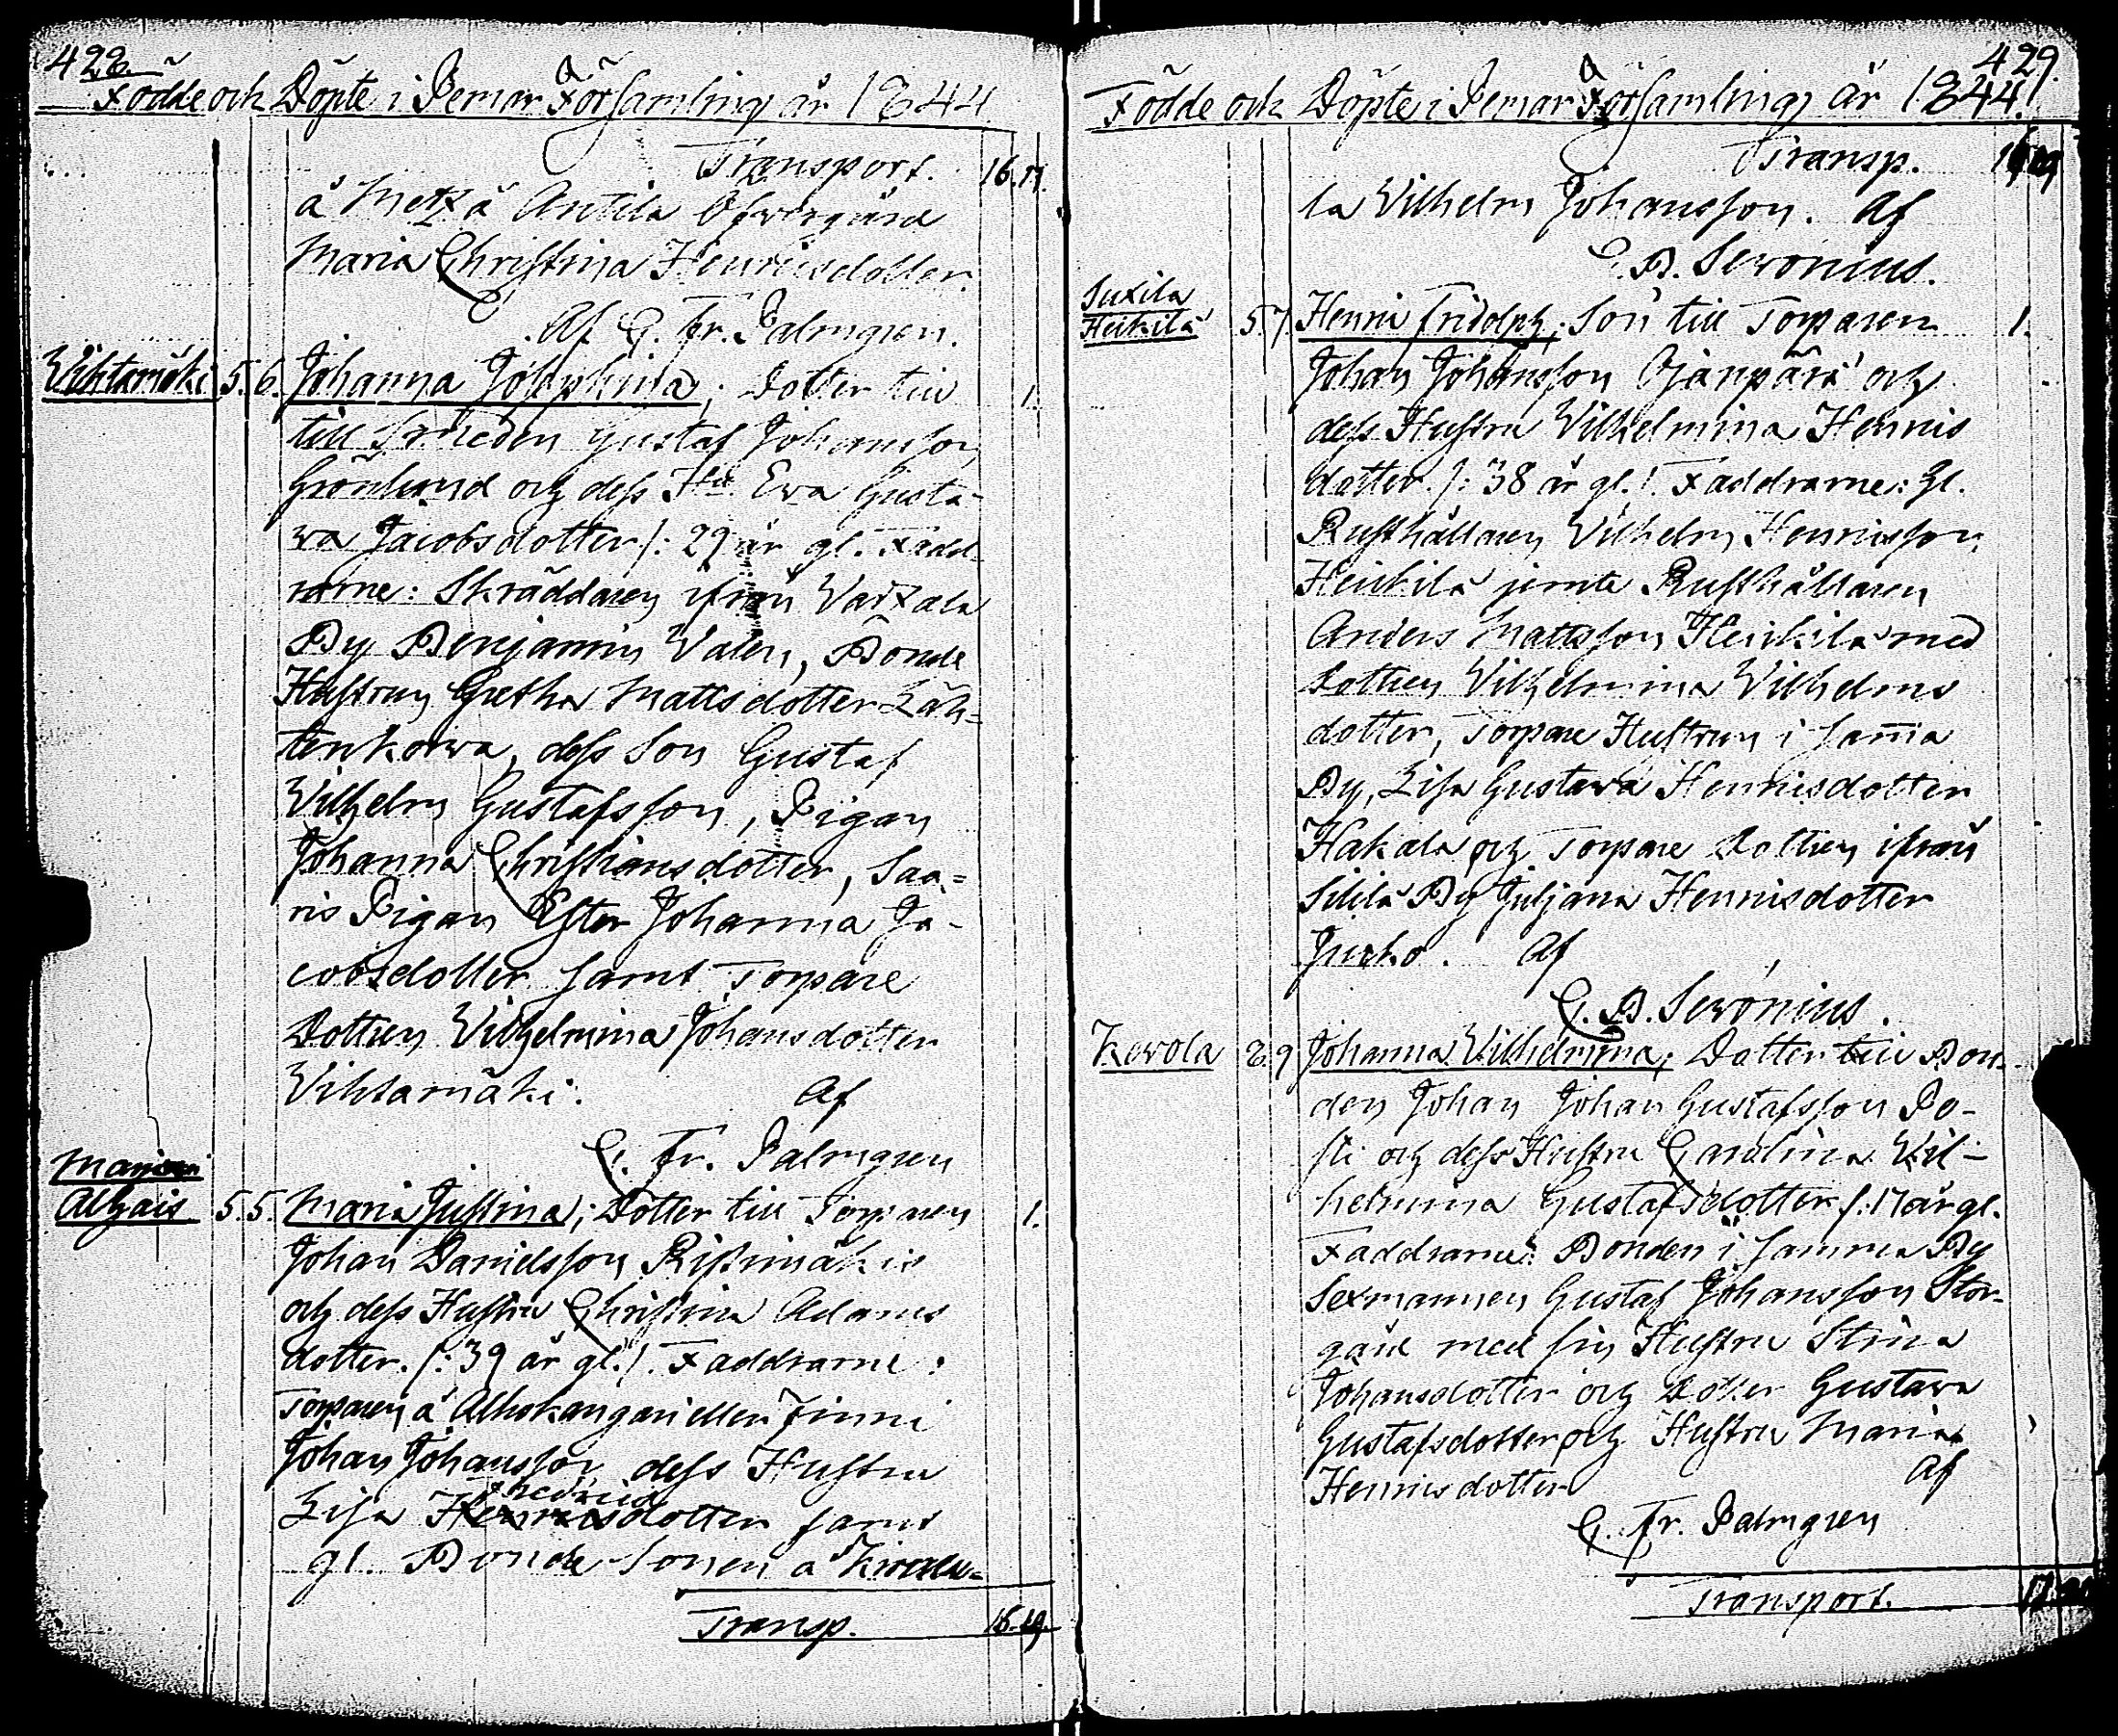 428.
Födde och Döpte i Pemar Församling år 1844
Transport. 16. 17.
å Metzä Antila Öfvergård
Maria Christina Henricsdotter.
Af C. Fr. Palmgren.
Wihtamäki 5. 6. Johanna Josephina; Dotter till 1.
till Smeden Gustaf Johansson
Grönlund och dess Hu Ewa Gusta-
va Jacobsdotter /: 29 år gl. Fadd-
rarne: Skräddaren ifrån Vartzala
By Benjamin Valen, Bonde
Hustrun Gretha Mattsdotter Läh-
tenkorva, dess Son Gustaf
Vilhelm Gustafsson, Pigan
Johanna Christiansdotter, Saa-
ris Pigan Ester Johanna Ja-
cobsdotter samt Torpare
Dottren Vilhelmina Johansdotter
Vihtamäki. Af
C. Fr. Palmgren
Alhais 5. 5. Maria Justina; Dotter till Torparen 1.
Johan Danielsson Rissimäki
och dess Hustru Christina Adams
dotter. /: 39 år gl. /. Faddrarne:
Torparen å Alhokangari eller Finni
Johan Johansson dess Hustru
Fredrics
Lisa Henricsdotter samt
gl. Bonde Sonen å
Transp. 16. 19.
429.
Födde och Döpte i Pemar Församling år 1844.
Transp. 16 19
la Vilhelm Johansson. Af
C. B. Seronius.
Suxila
Heikilä 5. 7 Henric Fridolph; Son till Torparen 1.
Johan Johansson Ojanpärä och
dess Hustru Vilhelmina Henrics
dotter. /: 38 år gl. /. Faddrarne: Gl.
Rusthållaren Vilhelm Henricsson
Heickilä jemte Rusthållaren
Anders Mattsson Heickilä med
Dottren Vilhelmina Vilhelms
dotter, Torpare Hustrun i samma
By, Lisa Gustava Henricsdotter
Hakala och Torpare Dottren ifrån
Sililä By Juljana Henricsdotter
Jucko. Af
C. B. Seronius.
Kevola 8. 9 Johanna Vilhelmina; Dotter till Bon-
den Johan Johan Gustafsson Po-
sti och dess Hustru Carolina Vil-
helmina Gustafsdotter /: 17 år gl.
Faddrarne: Bonden i samma By
Sexmannen Gustaf Johansson Stor-
gård med sin Hustru Stina
Johansdotter och Dotter Gustava
Gustafsdotter och Hustru Maria
Henricsdotter Af
C. Fr. Palmgren
Transport. 17.